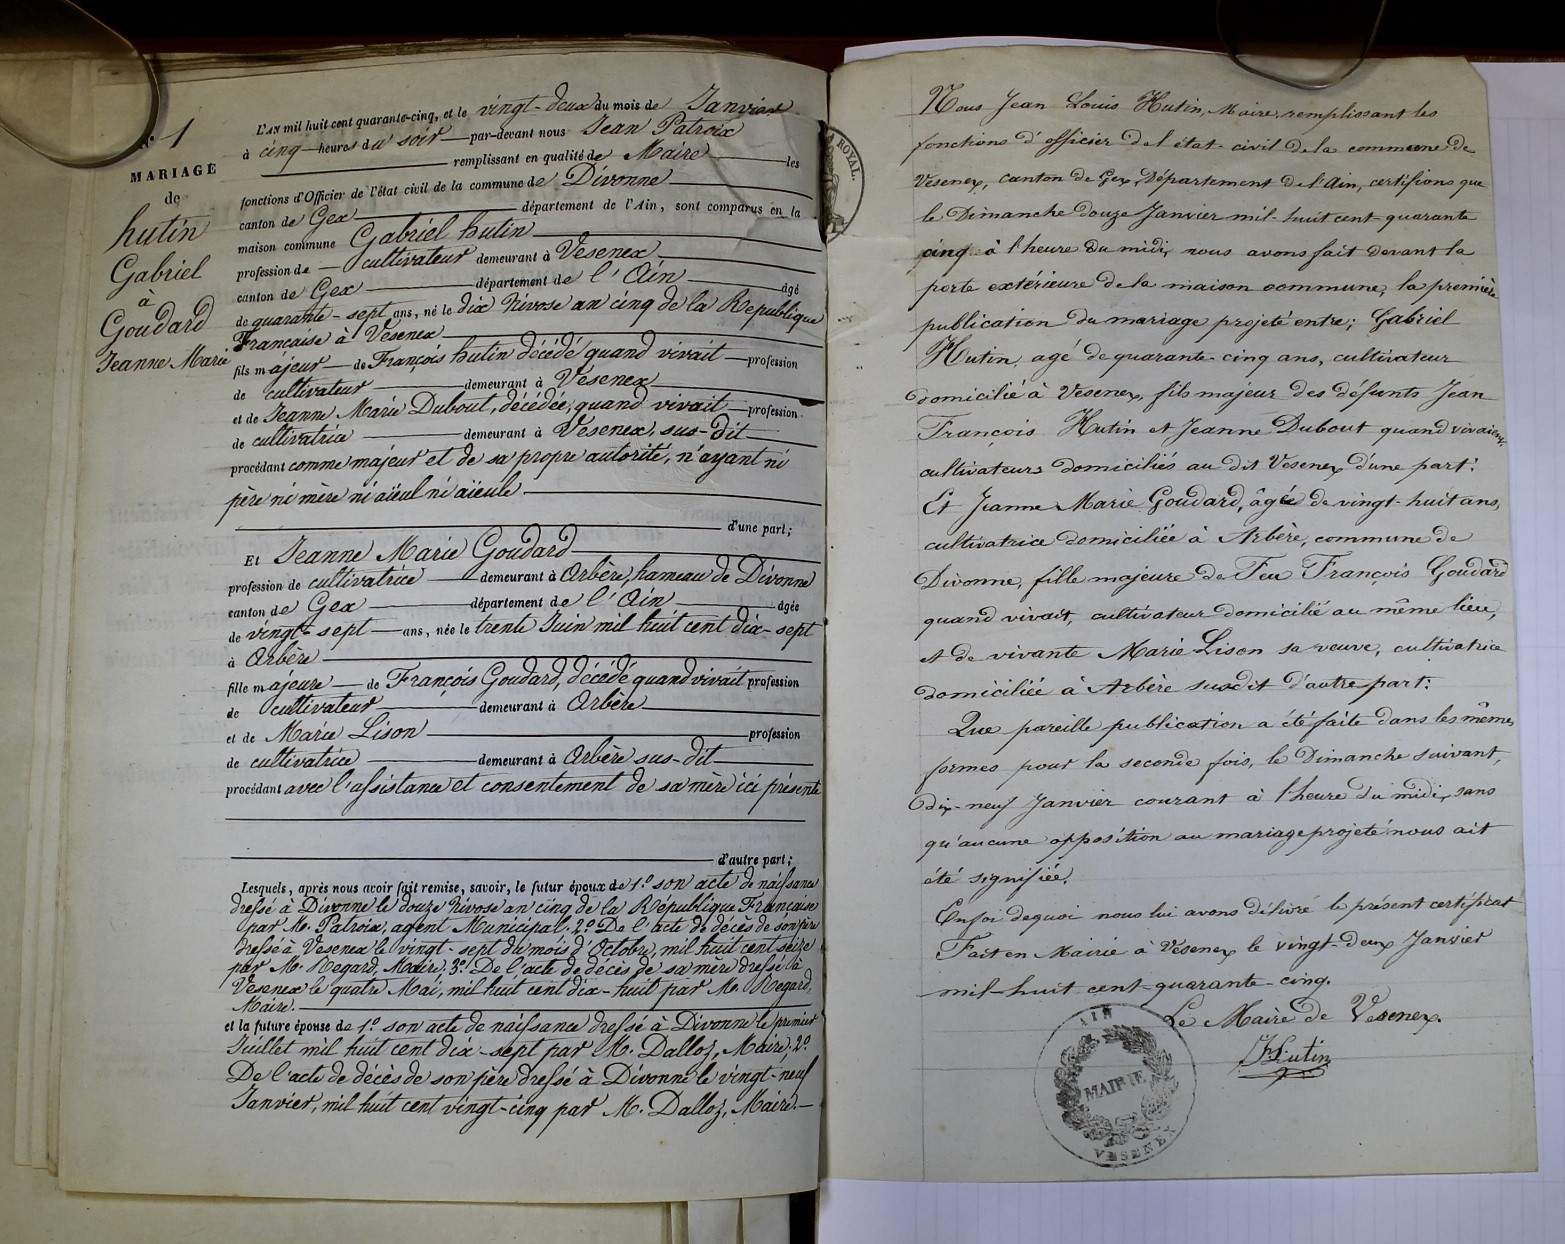 N° 1
MARIAGE
de
hutin
Gabriel
à
Goudard
Jeanne Marie
L'AN mil huit cent quarante-cinq, et le vingt-deux du mois de Janvier
à cinq heures du soir par-devant nous Jean Patroix
remplissant en qualité de Maire les
fonctions d'Officier de l'état civil de la commune de Divonne
canton de Gex département de l'Ain, sont comparus en la
maison commune Gabriel hutin
profession de cultivateur demeurant à Vesenex
canton de Gex département de l'Ain âgé
de quarante-sept ans, né le dix Nivose an cinq de la République
Française à Vesenex
fils majeur de François hutin décédé quand vivait profession
de cultivateur demeurant à Vesenex
et de Jeanne Marie Dubout, décédée, quand vivait profession
de cultivatrice demeurant à Vésenex, sus-dit
procédant comme majeur et de sa propre autorité, n'ayant ni
père ni mère ni aïeul ni aïeule
d'une part;
Et Jeanne Marie Goudard
profession de cultivatrice demeurant à Arbère, hameau de Divonne
canton de Gex département de l'Ain âgée
de vingt-sept ans, née le trente Juin mil huit cent dix-sept
à Arbère
fille majeure de François Goudard, décédé quand vivait profession
de cultivateur demeurant à Arbère
et de Marie Lison profession
de cultivatrice demeurant à Arbère sus-dit
procédant avec l'assistance et consentement de sa mère ici présente
d'autre part;
Lesquels, après nous avoir fait remise, savoir, le futur époux de 1.° son acte de naissance
dressé à Divonne le douze Nivose an cinq de la République Française
par M. Patroix, agent Municipal. 2.° De l'acte de décès de son père
dressé à Vesenex le vingt-sept du mois d'Octobre, mil huit cent seize
par M. Regard, Maire. 3.° De l'acte de décès de sa mère dressé à
Vesenex le quatre Mai, mil huit cent dix-huit par M. Regard,
Maire.
et la future épouse de 1.° son acte de naissance dressé à Divonne le premier
Juillet mil huit cent dix-sept par M. Dalloz, Maire. 2.°
De l'acte de décès de son père dressé à Divonne le vingt-neuf
Janvier, mil huit cent vingt-cinq par M. Dalloz, Maire.
ROYAL.
Nous Jean Louis Hutin, Maire, remplissant les
fonctions d'officier de l'état-civil de la commune de
Vésenex, canton de Gex, Département de l'Ain, certifions que
le Dimanche douze Janvier mil-huit cent-quarante
cinq à l'heure du midi, nous avons fait devant la
porte extérieure de la maison commune, la première
publication du mariage projeté entre; Gabriel
Hutin, agé de quarante-cinq ans, cultivateur
domicilié à Vesenex, fils majeur des défunts Jean
François Hutin et Jeanne Dubout quand vivaient,
cultivateurs domiciliés au dit Vesenex d'une part:
Et Jeanne Marie Goudard, âgée de vingt-huit ans,
cultivatrice domiciliée à Arbère, commune de
Divonne, fille majeure de Feu François Goudard
quand vivait, cultivateur domicilié au même lieu,
et de vivante Marie Lison sa veuve, cultivatrice
domiciliée à Arbère susdit d'autre part:
Que pareille publication a été faite dans les mêmes
formes pour la seconde fois, le Dimanche suivant,
Dix-neuf Janvier courant à l'heure du midi, sans
qu'aucune opposition au mariage projeté nous ait
été signifiée.
En foi de quoi nous lui avons délivré le présent certificat
Fait en Mairie à Vésenex le vingt-deux Janvier
mil-huit cent-quarante-cinq.
Le Maire de Vesenex.
Hutin
AIN
MAIRIE
VESENEX